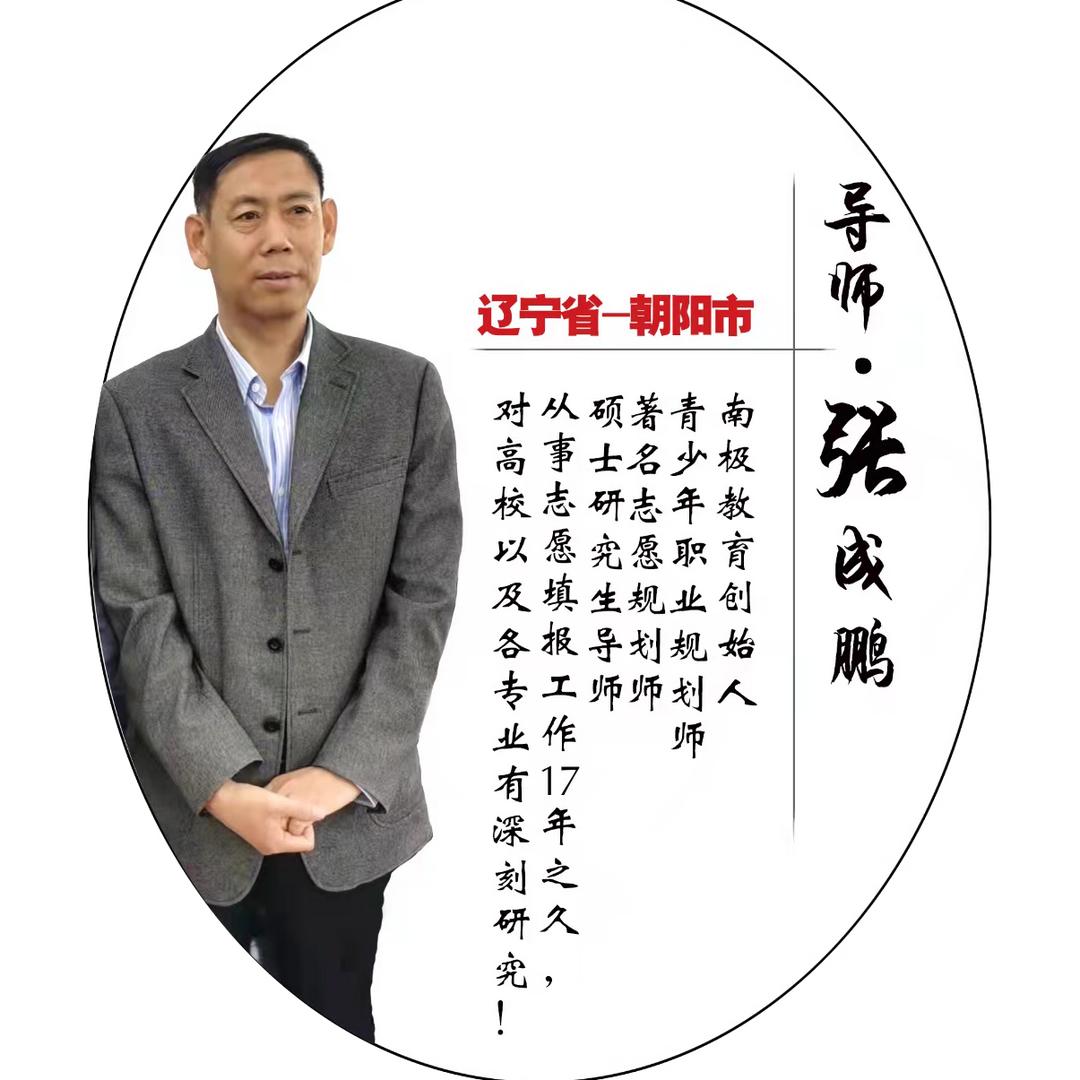 导师·张成鹏
辽宁省—朝阳市
南极教育创始人
青少年职业规划师
著名志愿规划师
硕士研究生导师
从事志愿填报工作17年之久，
对高校以及各专业有深刻研究！